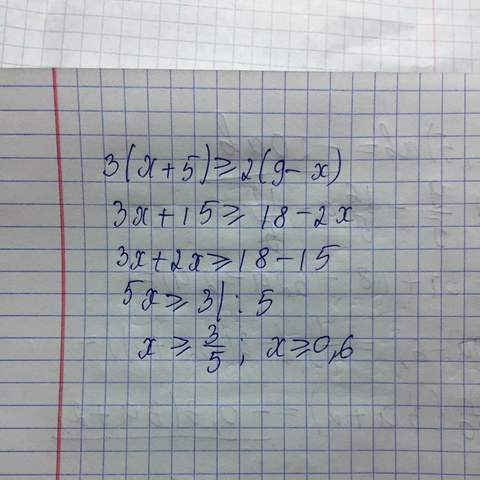 3(x+5)≥2(9-x)
3x+15≥18-2x
3x+2x≥18-15
5x≥3|:5
x≥3/5; x≥0,6